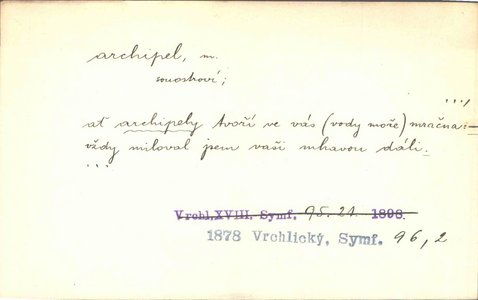 archipel, m.
souostroví;
...,
ať archipely tvoří ve vás (vody moře) mračna: –
vždy miloval jsem vaši mhavou dáli.
...
Vrchl.XVIII, Symf, 95.21. 1898.
1878 Vrchlický, Symf. 96,2